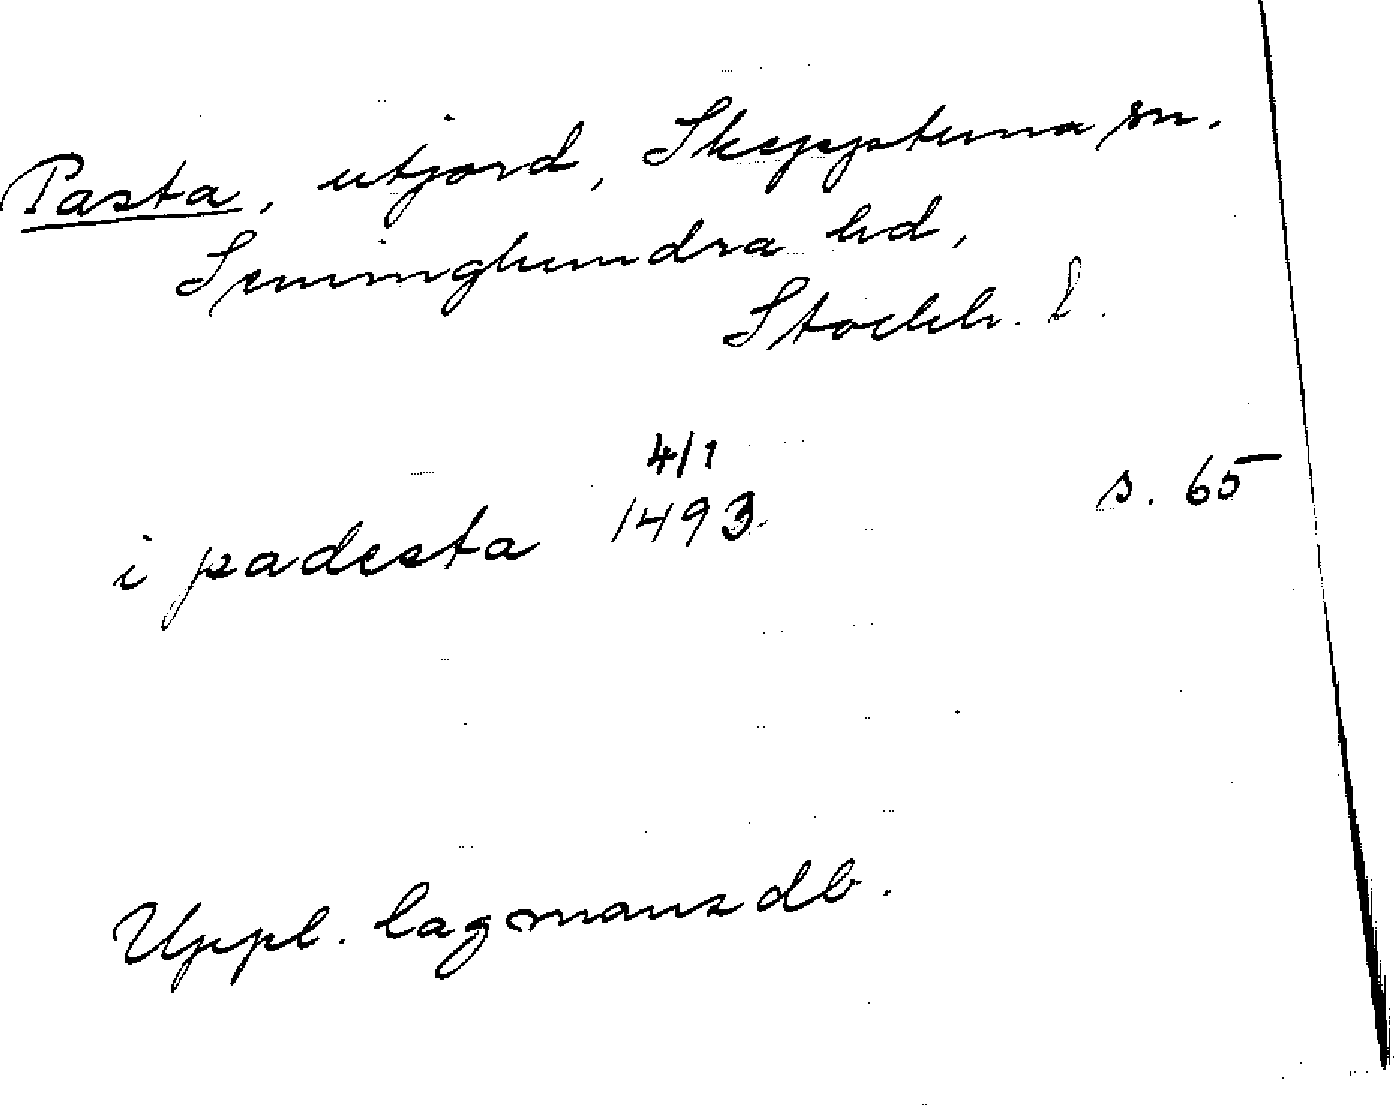 Pasta, utjord, Skepptuna sn.
Seminghundra hd,
Stockh. l.
4/1
i padesta 1493. s. 65
Uppl. lagmansdb.